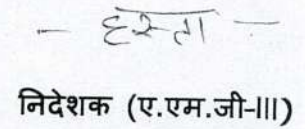 - हस्ता -
निदेशक (ए.एम.जी-III)